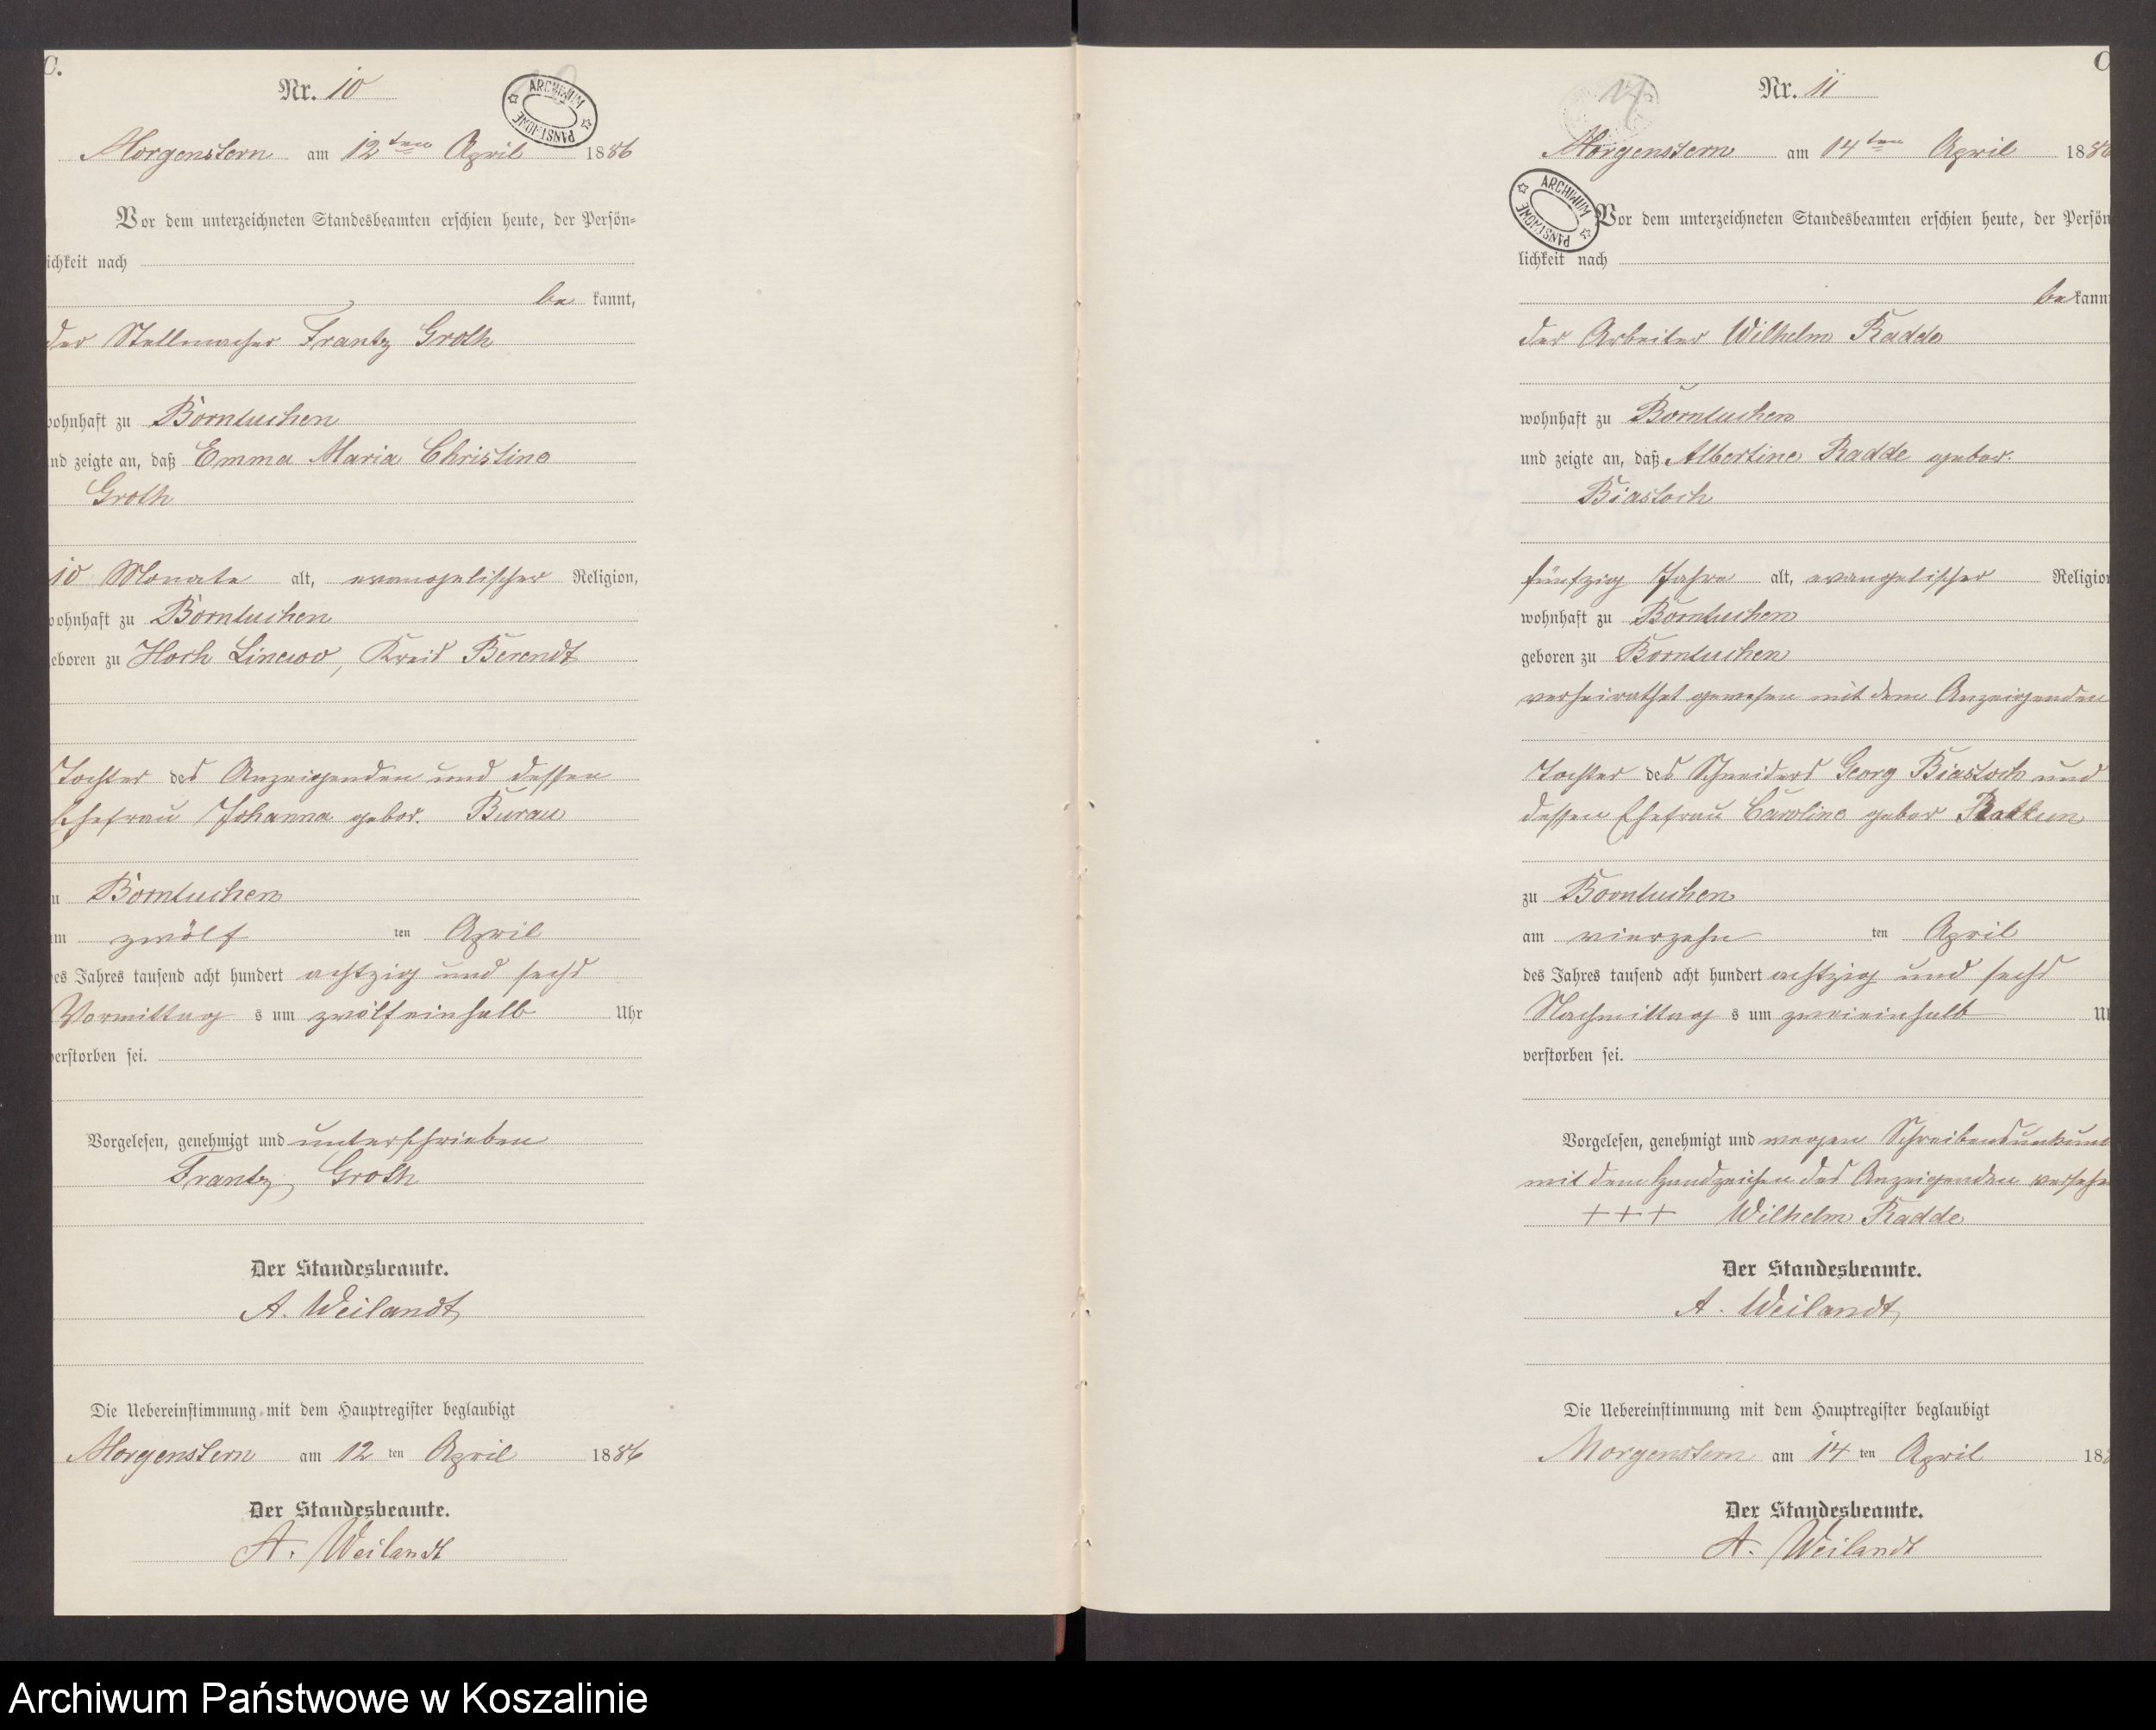 C.
Nr. 10
ARCHIWUM PAŃSTWOWE
Morgenstern am 12ten April 1886
Vor dem unterzeichneten Standesbeamten erschien heute, der Persön-
ichkeit nach
be kannt,
der Stellmacher Frantz Groth
wohnhaft zu Borntuchen
nd zeigte an, daß Emma Maria Christine
Groth
10 Monate alt, evangelischer Religion,
wohnhaft zu Borntuchen
eboren zu Hoch Liniewo, Kreis Berendt
Tochter des Anzeigenden und dessen
Ehefrau Johanna gebor. Burau
u Borntuchen
am zwölf ten April
es Jahres tausend acht hundert achtzig und sechs
Vormittag s um zwölfeinhalb Uhr
verstorben sei.
Vorgelesen, genehmigt und unterschrieben
Frantz Groth
Der Standesbeamte.
A. Weilandt
Die Uebereinstimmung mit dem Hauptregister beglaubigt
Morgenstern am 12 ten April 1886
Der Standesbeamte.
A. Weilandt
C
Nr. 11
Morgenstern am 14ten April 1886
ARCHIWUM PAŃSTWOWE
Vor dem unterzeichneten Standesbeamten erschien heute, der Persön
lichkeit nach
be kann
der Arbeiter Wilhelm Radde
wohnhaft zu Borntuchen
und zeigte an, daß Albertine Radde gebor.
Biastoch
fünfzig Jahre alt, evangelischer Religio
wohnhaft zu Borntuchen
geboren zu Borntuchen
verheirathet gewesen mit dem Anzeigenden
Tochter des Schneiders Georg Biastoch und
dessen Ehefrau Caroline gebor Ratkun
zu Borntuchen
am vierzehn ten April
des Jahres tausend acht hundert achtzig und sechs
Nachmittag s um zweieinhalb U
verstorben sei.
Vorgelesen, genehmigt und wegen Schreibensunkund
mit dem Handzeichen des Anzeigenden versehe
+++ Wilhelm Radde
Der Standesbeamte.
A. Weilandt
Die Uebereinstimmung mit dem Hauptregister beglaubigt
Morgenstern am 14 ten April 188
Der Standesbeamte.
A. Weilandt
Archiwum Państwowe w Koszalinie